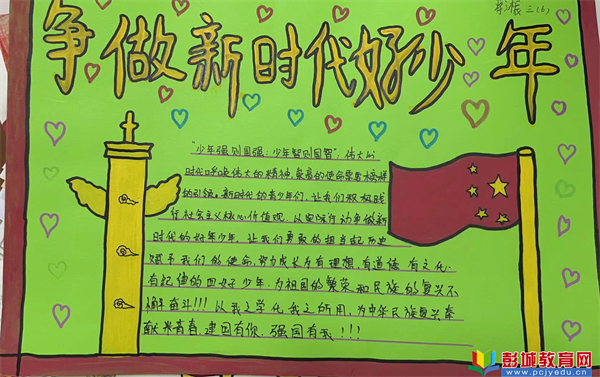 三(6)
争做新时代好少年
"少年强则国强;少年智则国智",伟大的
时代呼唤伟大的精神,崇高的使命需要榜样
的引领。新时代的青少年们,让我们积极践
行社会主义核心价值观,以实际行动争做新
时代的好年少年,让我们勇敢的担当起历史
赋予我们的使命,努力成长为有理想,有道德 有文化.
有纪律的四好少年,为祖国的繁荣和民族的复兴不
懈奋斗!!! 以我之学 化 我之所用,为中华民族复兴奉
献光青春,建国有你,强国有我!!!
彭城教育网
www.pcjyedu.cn